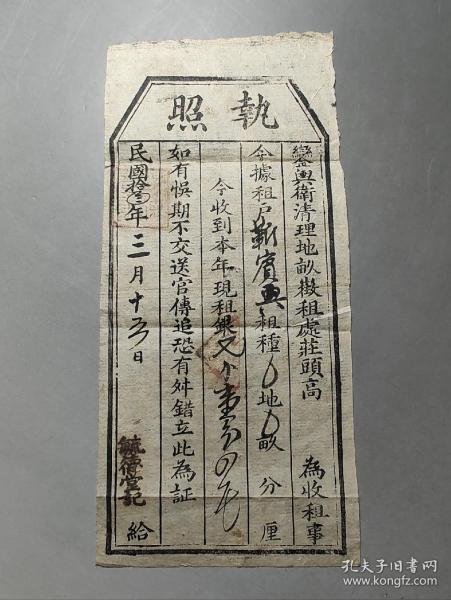 執照
鑾輿衛清理地畝徵租處莊頭高 為收租事
今據租户靳賓興租種 地 畝 分 厘
今收到本年現租銀
如有悞期不交送官傳追恐有舛錯立此為証
民國拾 年三月十五日 毓德堂記 給
孔夫子旧书网
www.kongfz.com